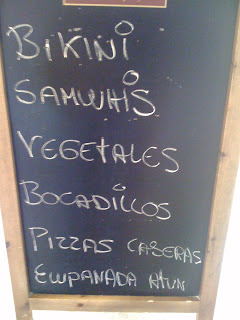 BIKINI
SAMWHIS
VEGETALES
BOCADILLOS
PIZZAS CASERAS
EMPANADA ATUN